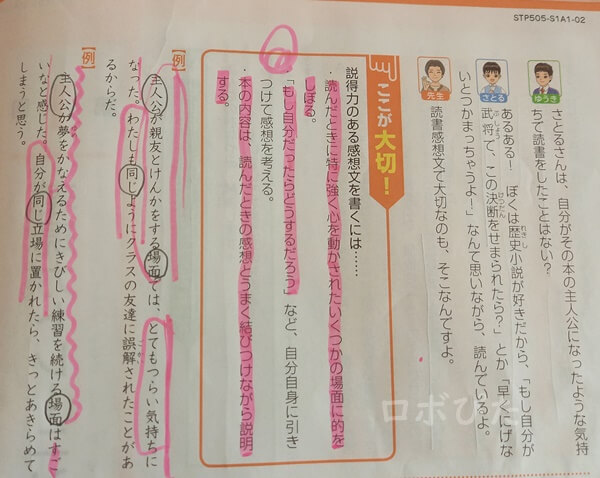 STP505-S1A1-02
ゆうき
さとるさんは、自分がその本の主人公になったような気持
ちで読書をしたことはない?
さとる
あるある! ぼくは歴史小説が好きだから、「もし自分が
武将で、この決断をせまられたら?」とか「早くにげな
いとつかまっちゃうよ!」なんて思いながら、読んでいるよ。
先生
読書感想文で大切なのも、そこなんですよ。
ここが大切!
説得力のある感想文を書くには……
・読んだときに特に強く心を動かされたいくつかの場面に的を
しぼる。
・「もし自分だったらどうするだろう」など、自分自身に引き
つけて感想を考える。
・本の内容は、読んだときの感想とうまく結びつけながら説明
する。
【例】
主人公が親友とけんかをする場面では、とてもつらい気持ちに
なった。わたしも同じようにクラスの友達に誤解されたことがあ
るからだ。
【例】
主人公が夢をかなえるためにきびしい練習を続ける場面はすご
いなと感じた。自分が同じ立場に置かれたら、きっとあきらめて
しまうと思う。
ロボぴた